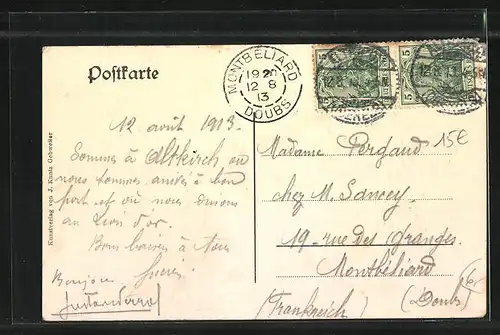 Postkarte
MONTBÉLIARD
19 20
12 8
13
DOUBS
5
5
15€
12 août 1913.
Sommes à Altkirch où
nous sommes arrivés à bon
port et où nous dînons
au Lion d'or.
Bons baisers à tous
Bonjour
Madame Pergaud
chez M. Sancey
19 - rue des Granges
Montbéliard
(Doubs)
(Frankreich)
Kunstverlag von J. Kuntz Gebweiler